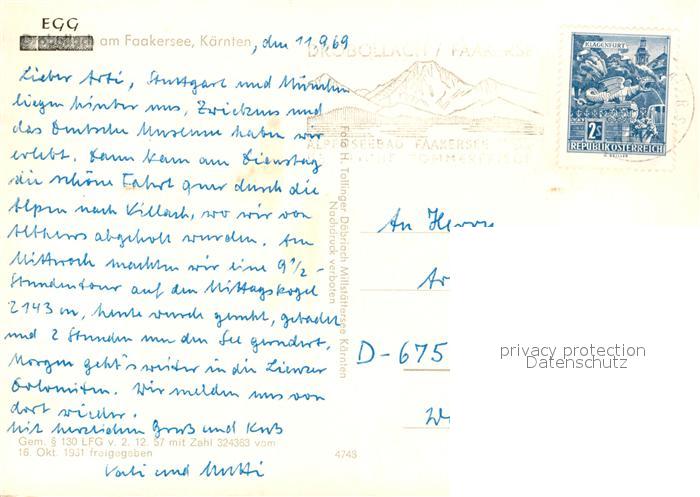 EGG
am Faakersee, Kärnten, den 11.9.69
DROBOLLACH / FAAKERSEE
KLAGENFURT
2S
REPUBLIK ÖSTERREICH
ALPENSEEBAD FAAKERSEE
SOMMERFRISCHE
Lieber Arti, Stuttgart und München
liegen hinter uns, Zirkus und
das Deutsche Museum haben wir
erlebt. Dann kam am Dienstag
die schöne Fahrt quer durch die
Alpen nach Villach, wo wir von
abgeholt wurden. Am
Mittwoch machten wir eine 9 1/2-
Stundentour auf den Mittagskogel
2143 m, heute wurde geruht, gebadet
und 2 Stunden um den See gerudert.
Morgen geht's weiter in die Lienzer
Dolomiten. Wir melden uns von
dort wieder.
Mit herzlichem Gruß und Kuß
Vati und Mutti
Gem. § 130 LFG v. 2. 12. 57 mit Zahl 324363 vom
16. Okt. 1961 freigegeben
4743
Foto H. Tollinger Döbriach Millstättersee Kärnten
Nachdruck verboten
An Herrn
Ar
D-675
privacy protection
Datenschutz